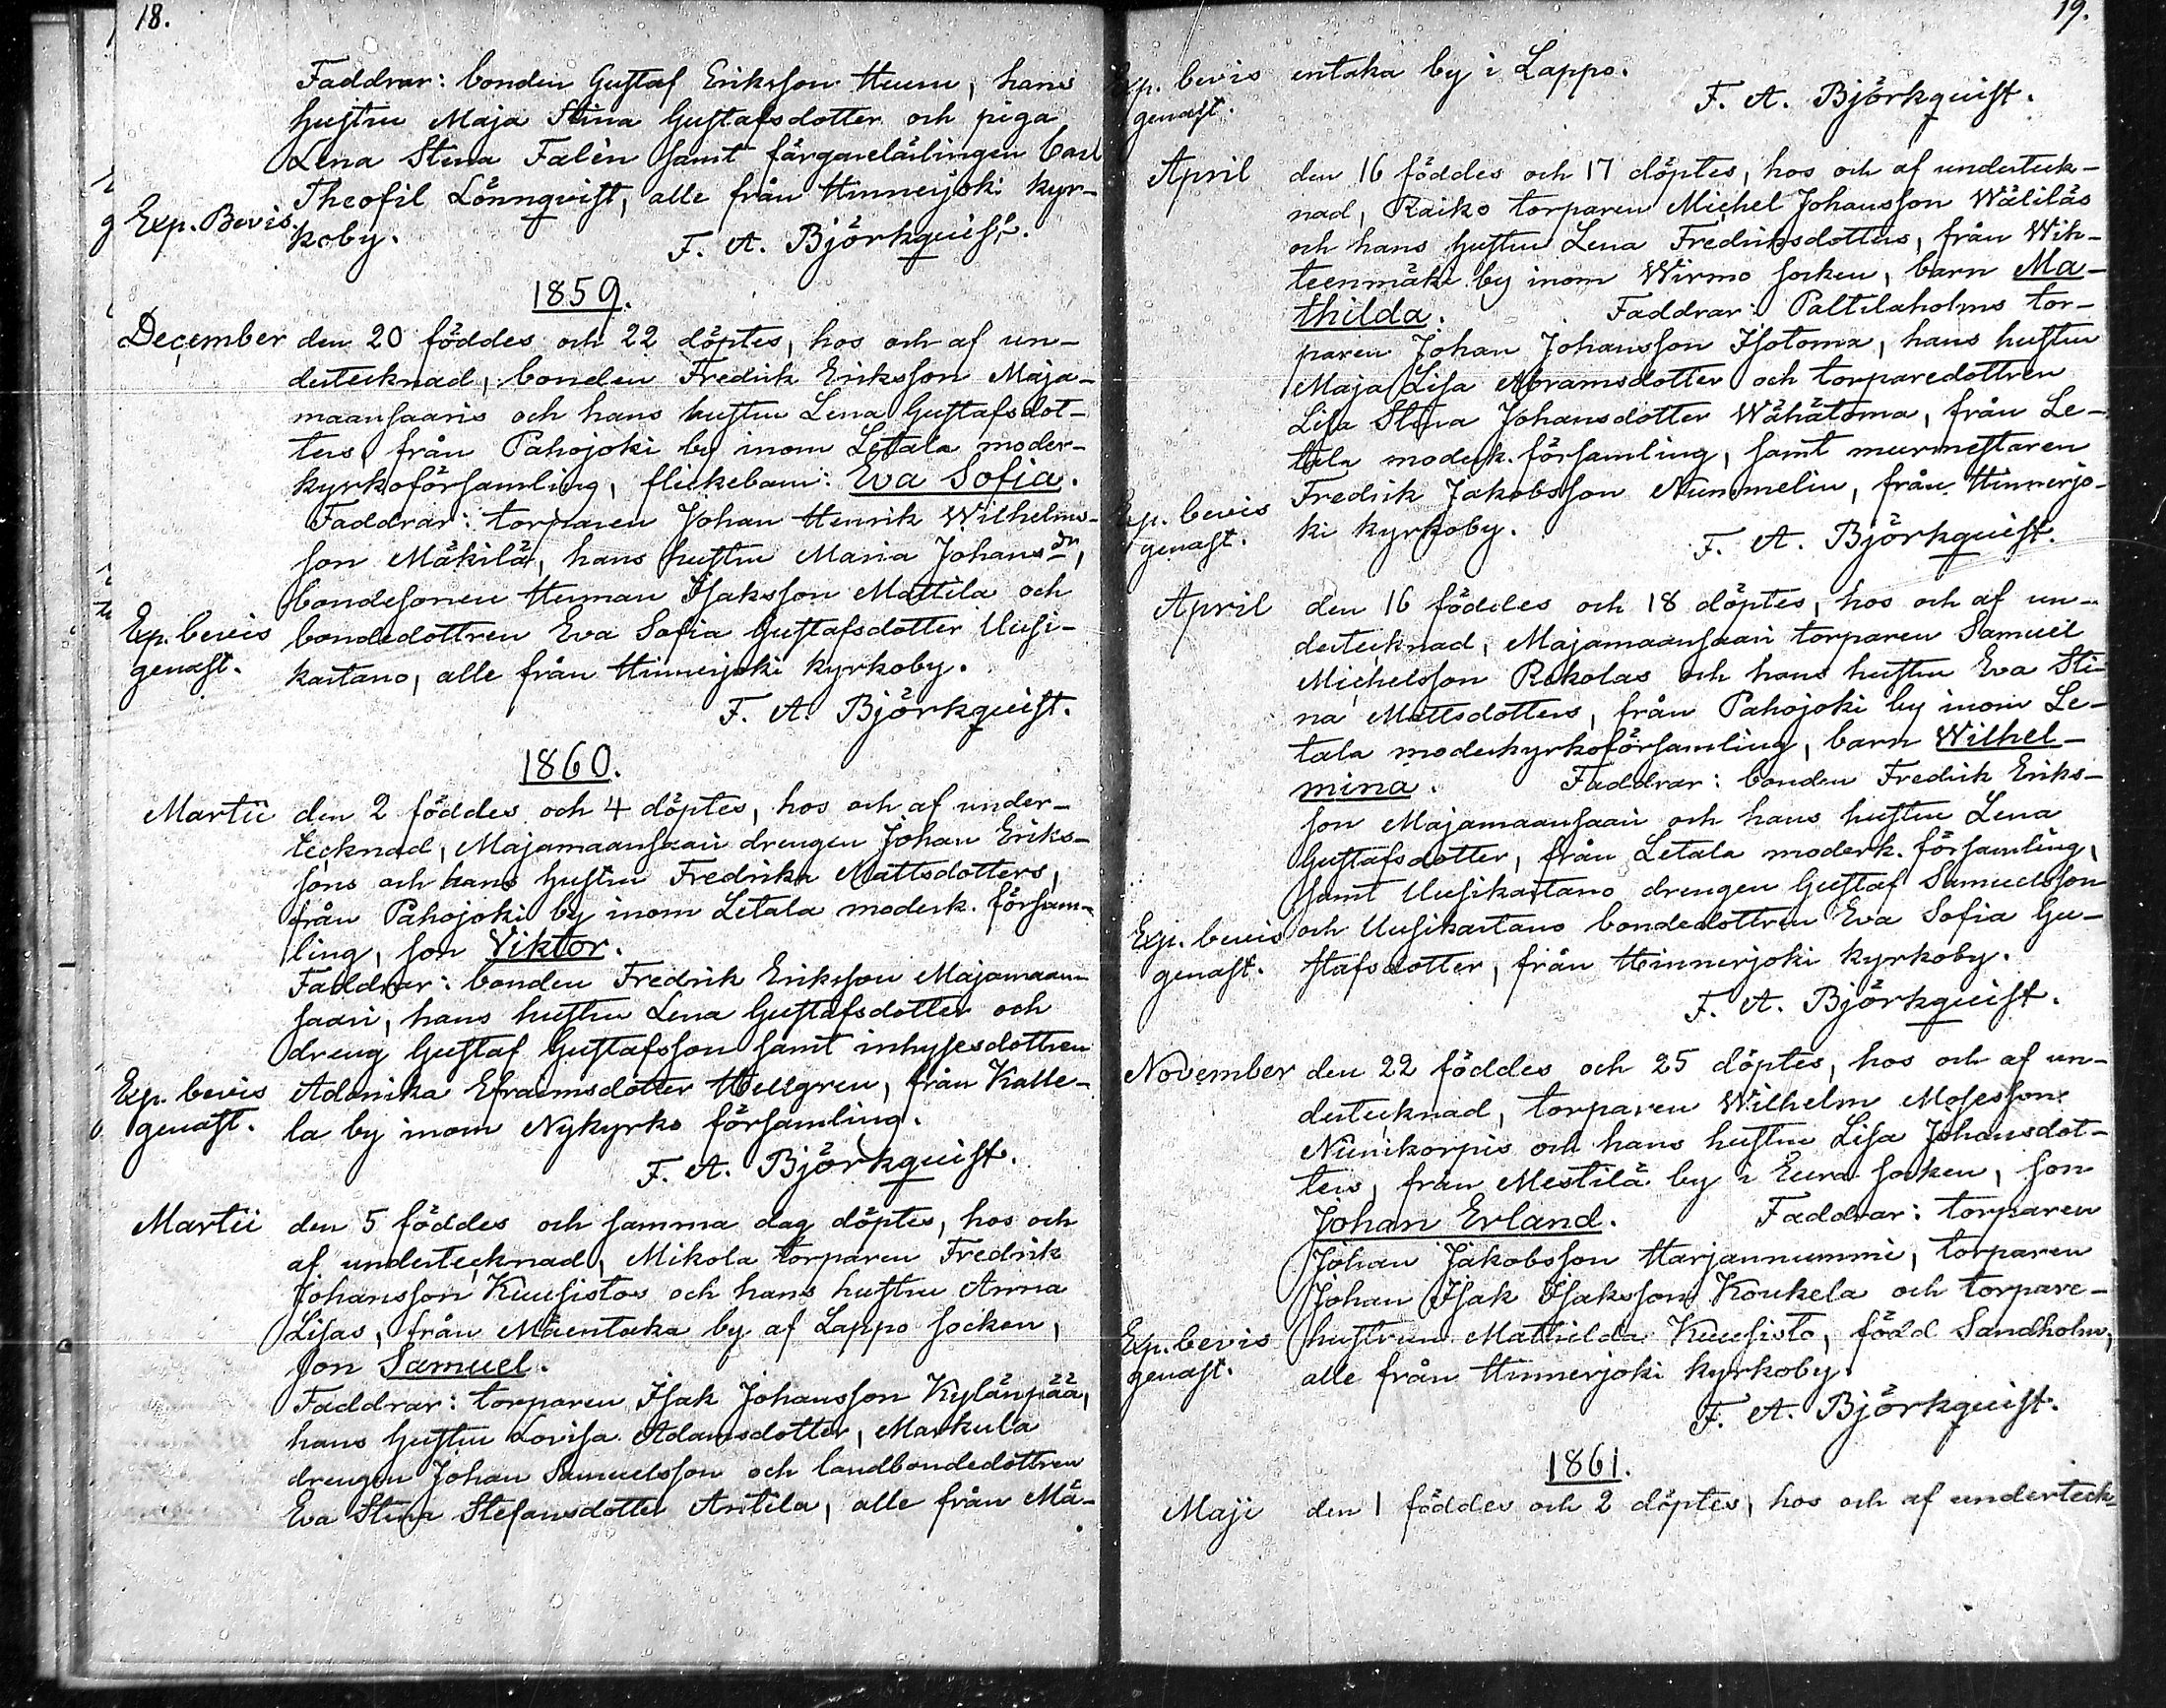 18.
Faddrar: bonden Gustaf Eriksson Huru, hans
hustru Maja Stina Gustafsdotter och piga
Lena Stina Falèn samt färgarelärlingen Carl
Theofil Lönnqvist, alle från Hinnerjoki kyr-
Exp. Bevis. koby. F. A. Björkquist.
1859.
December den 20 föddes och 22 döptes, hos och af un-
dertecknad, bonden Fredrik Eriksson Maja-
maansaaris och hans hustru Lena Gustafsdot-
ters, från Pahojoki by inom Letala moder-
kyrkoförsamling, flickebarn: Eva Sofia.
Faddrar: torparen Johan Henrik Wilhelms-
son Mäkilä, hans hustru Maria Johansdr,
bondesonen Herman Isaksson Mattila och
Exp. bevis bondedottren Eva Sofia Gustafsdotter Uusi-
genast. kartano, alle från Hinnerjoki kyrkoby.
F. A. Björkquist.
1860.
Martii den 2 föddes och 4 döptes, hos och af under-
tecknad, Majamaansaari drengen Johan Eriks-
sons och hans hustru Fredrika Mattsdotters,
från Pahojoki by inom Letala moderk. försam-
ling, son Viktor.
Faddrar: bonden Fredrik Eriksson Majamaan-
saari, hans hustru Lena Gustafsdotter och
dreng Gustaf Gustafsson samt inhysesdottren
Exp. bevis Adamika Efraimsdotter Hellgren, från Kalle-
genast. la by inom Nykyrko församling.
F. A. Björkquist.
Martii den 5 föddes och samma dag döptes, hos och
af undertecknad, Mikola torparen Fredrik
Johansson Kuusistos och hans hustru Anna
Lisas, från Mäentaka by af Lappo socken,
son Samuel.
Faddrar: torparen Isak Johansson Kylänpää,
hans hustru Lovisa Adamsdotter, Markula
drengen Johan Samuelsson och landbondedottren
Eva Stina Stefansdotter Antila, alle från Mä-
19.
Exp. bevis entaka by i Lappo.
genast. F. A. Björkquist.
April den 16 föddes och 17 döptes, hos och af underteck-
nad, Raiko torparen Michel Johansson Wäliläs
och hans hustru Lena Fredriksdotters, från Wih-
teenmäki by inom Wirmo socken, barn Ma-
thilda. Faddrar: Paltilaholms tor-
paren Johan Johansson Isotoma, hans hustru
Maja Lisa Abramsdotter och torparedottren
Lisa Stina Johansdotter Wähätoma, från Le-
tala moderk. församling, samt murmestaren
Exp. bevis Fredrik Jakobsson Nummelin, från Hinnerjo-
genast. ki kyrkoby. F. A. Björkquist.
April den 16 föddes och 18 döptes, hos och af un-
dertecknad, Majamaansaari torparen Samuel
Michelsson Rokolas och hans hustru Eva Sti-
na Mattsdotters, från Pahojoki by inom Le-
tala moderkyrkoförsamling, barn Wilhel-
mina. Faddrar: bonden Fredrik Eriks-
son Majamaansaari och hans hustru Lena
Gustafsdotter, från Letala moderk. församling,
samt Uusikartano drengen Gustaf Samuelsson
Exp. bevis och Uusikartano bondedottren Eva Sofia Gu-
genast. stafsdotter, från Hinnerjoki kyrkoby.
F. A. Björkquist.
November den 22 föddes och 25 döptes, hos och af un-
dertecknad, torparen Wilhelm Mosesson
Niinikorpis och hans hustru Lisa Johansdot-
ters, från Mestilä by i Eura socken, son
Johan Erland. Faddrar: torparen
Johan Jakobsson Harjannummi, torparen
Johan Isak Isaksson Koukela och torpare-
Exp. bevis hustrun Mathilda Kuusisto, född Sandholm,
genast. alle från Hinnerjoki kyrkoby.
F. A. Björkquist.
1861.
Maji den 1 föddes och 2 döptes, hos och af underteck-